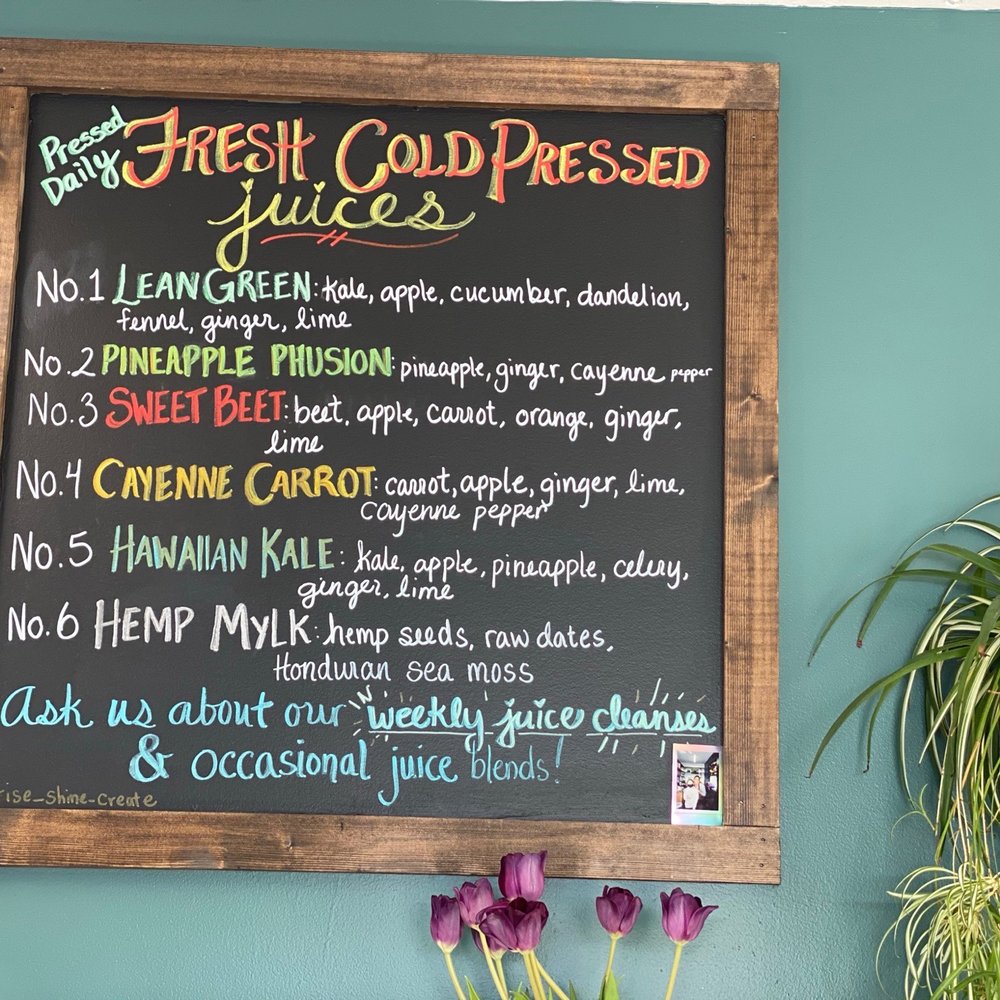 Pressed
Daily
FRESH COLD PRESSED
juices
No.1 LEAN GREEN: kale, apple, cucumber, dandelion,
fennel, ginger, lime
No.2 PINEAPPLE PHUSION: pineapple, ginger, cayenne pepper
No.3 SWEET BEET: beet, apple, carrot, orange, ginger,
lime
No.4 CAYENNE CARROT: carrot, apple, ginger, lime,
cayenne pepper
No.5 HAWAIIAN KALE: kale, apple, pineapple, celery,
ginger, lime
No.6 HEMP MYLK: hemp seeds, raw dates,
Honduran sea moss
Ask us about our weekly juice cleanses
& occasional juice blends!
rise_shine_create